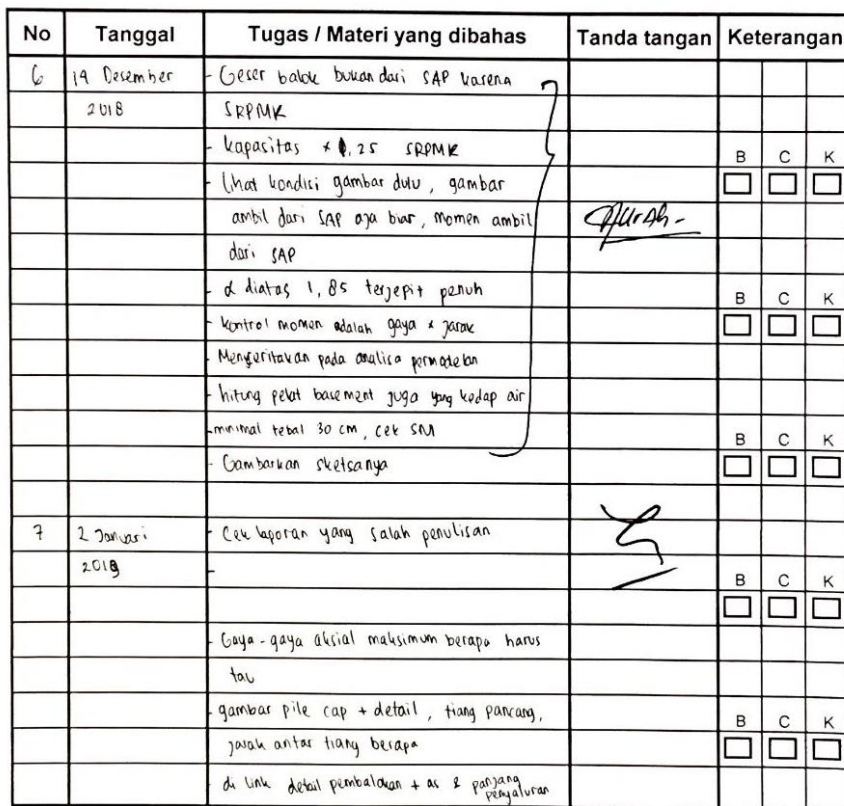 No Tanggal Tugas / Materi yang dibahas Tanda tangan Keterangan
6 19 Desember - Geser balok bukan dari SAP karena
2018 SRPMK
- kapasitas * 1,25 SRPMK
B C K
- lihat kondisi gambar dulu, gambar
ambil dari SAP aja biar, momen ambil
dari SAP
- α diatas 1,85 terjepit penuh
B C K
- kontrol momen adalah gaya * jarak
- Menceritakan pada analisa permodelan
- hitung pelat basement juga yang kedap air
- minimal tebal 30 cm, cek SNI
B C K
- Gambarkan sketsanya
7 2 Januari - Cek laporan yang salah penulisan
2019 -
B C K
- Gaya-gaya aksial maksimum berapa harus
tau
- gambar pile cap + detail, tiang pancang,
B C K
jarak antar tiang berapa
- di link detail pembalokan + as & panjang
penyaluran